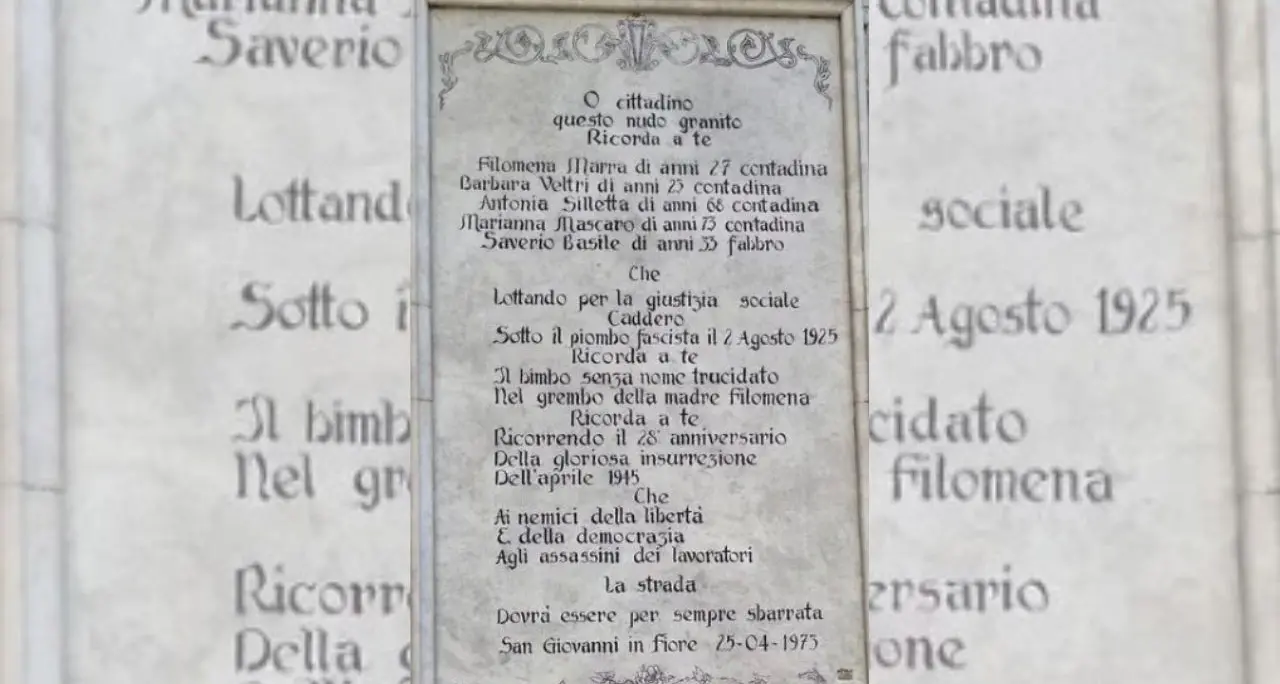 Saverio
Lottand
Sotto i
Il bimb
Nel gr
Ricorr
Della g
O cittadino
questo nudo granito
Ricorda a te
Filomena Marra di anni 27 contadina
Barbara Veltri di anni 23 contadina
Antonia Silletta di anni 68 contadina
Marianna Mascaro di anni 73 contadina
Saverio Basile di anni 33 fabbro
Che
Lottando per la giustizia sociale
Caddero
Sotto il piombo fascista il 2 Agosto 1925
Ricorda a te
Il bimbo senza nome trucidato
Nel grembo della madre filomena
Ricorda a te
Ricorrendo il 28° anniversario
Della gloriosa insurrezione
Dell'aprile 1945
Che
Ai nemici della libertà
E della democrazia
Agli assassini dei lavoratori
La strada
Dovrà essere per sempre sbarrata
San Giovanni in Fiore 25-04-1973
contadina
fabbro
sociale
2 Agosto 1925
cidato
filomena
ersario
one